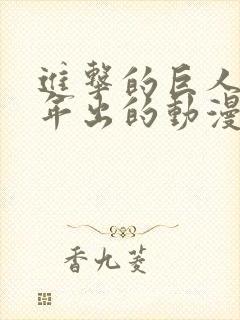 進撃的巨人
年出的動漫
香九菱